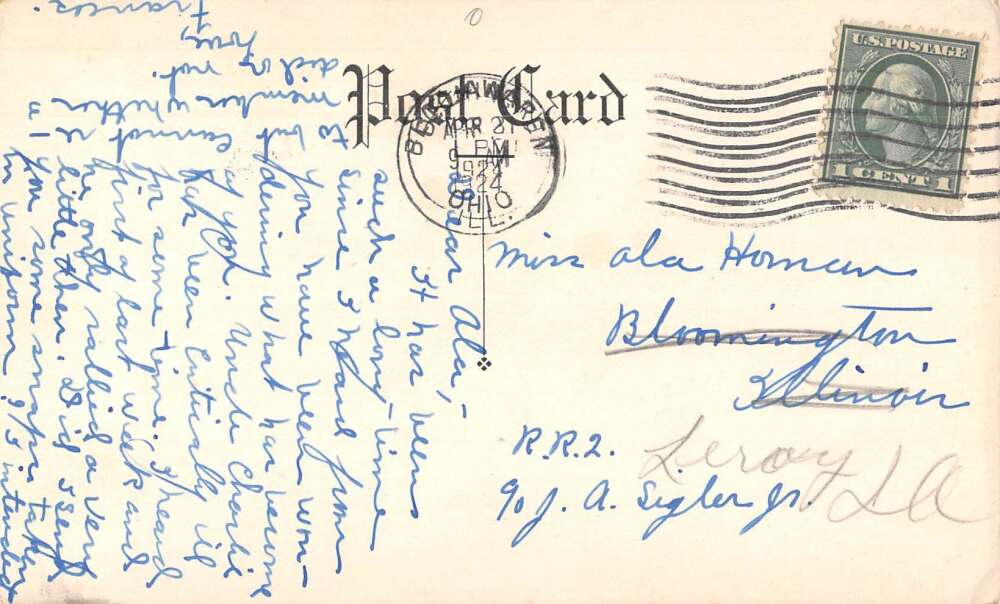 Post Card
U.S. POSTAGE
1 CENT 1
APR 21
PM
1924
OHIO
ILL.
Miss Ola Homan
Bloomington
Illinois
R.R.2.
℅ J. A. Sigler Jr.
Leroy
Dear Ola,-
It has been
such a long time
since I heard from
you have been won-
dering what has become
of you. Uncle Charlie
has been critically ill
for some time. I heard
first of last week and
he only rallied a very
little then. Did I send
you some snaps taken
in uniform. I'd intended
to but cannot re-
member whether I
did or not.
Love,
Frances.